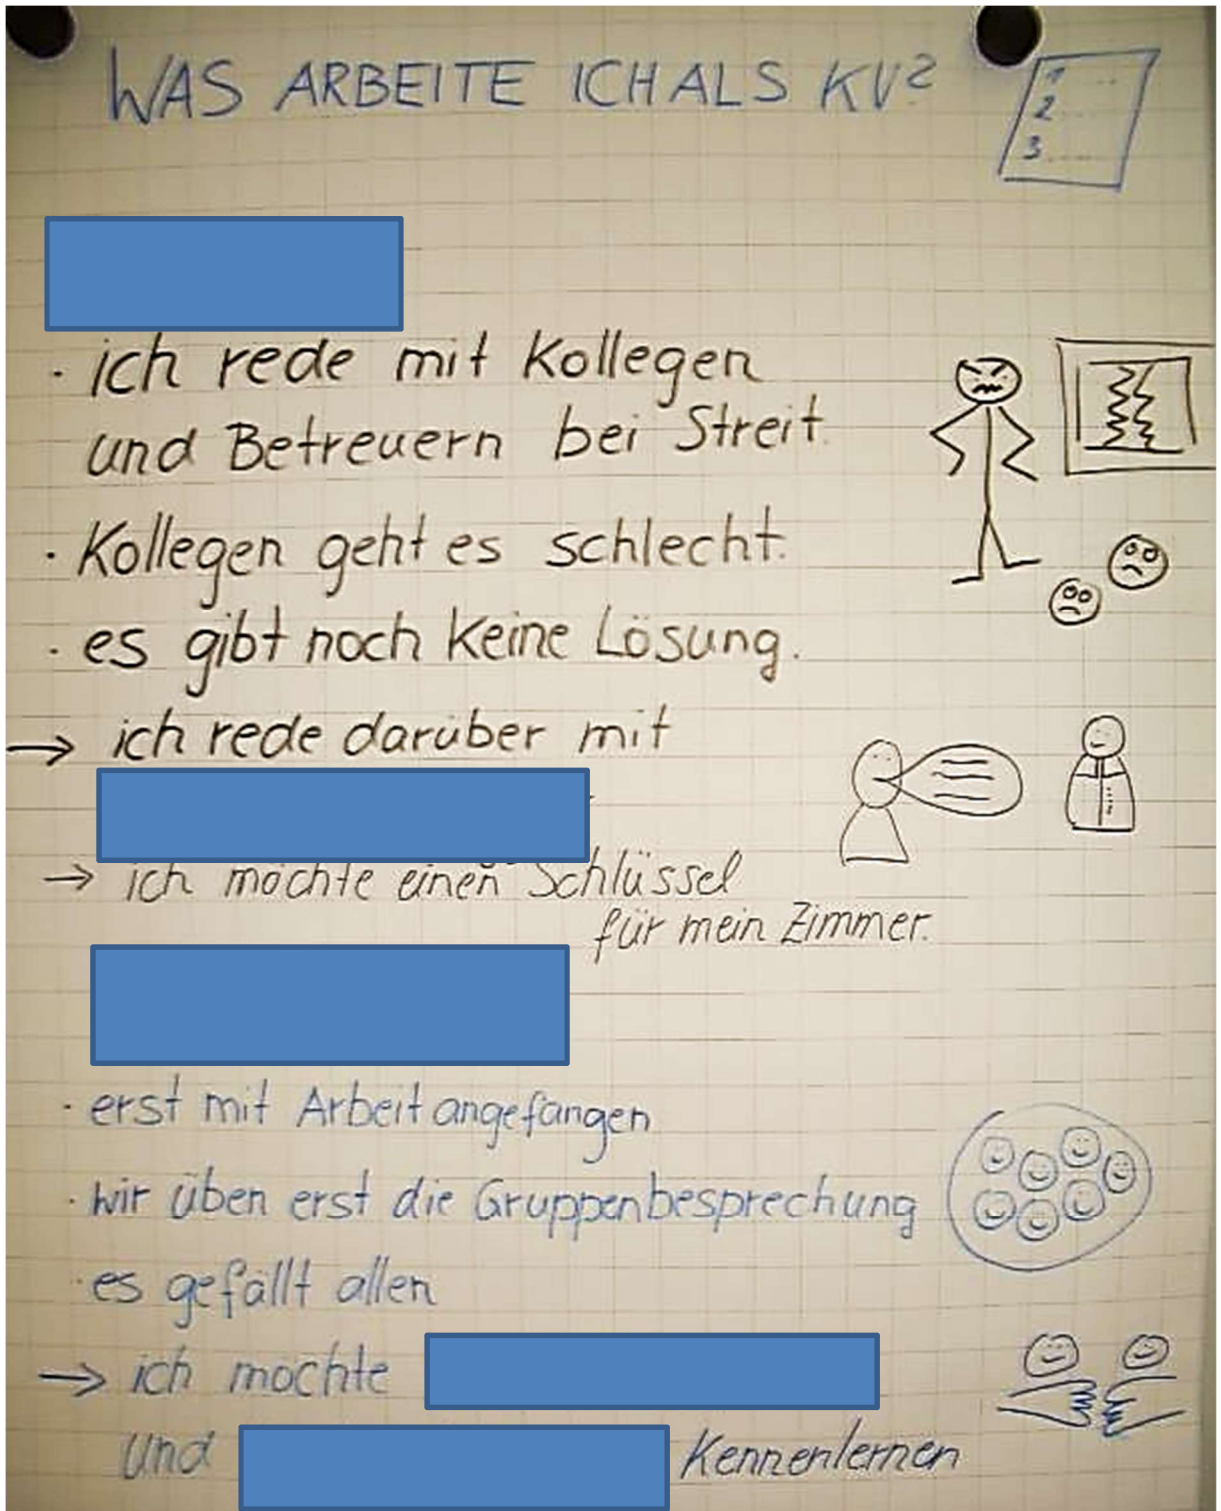 WAS ARBEITE ICH ALS KV?
1 ....
2 ....
3 ....
· ich rede mit Kollegen
und Betreuern bei Streit.
· Kollegen geht es schlecht.
· es gibt noch keine Lösung.
→ ich rede darüber mit
→ ich möchte einen Schlüssel
für mein Zimmer.
· erst mit Arbeit angefangen
· wir üben erst die Gruppenbesprechung
· es gefällt allen
→ ich möchte
und Kennenlernen